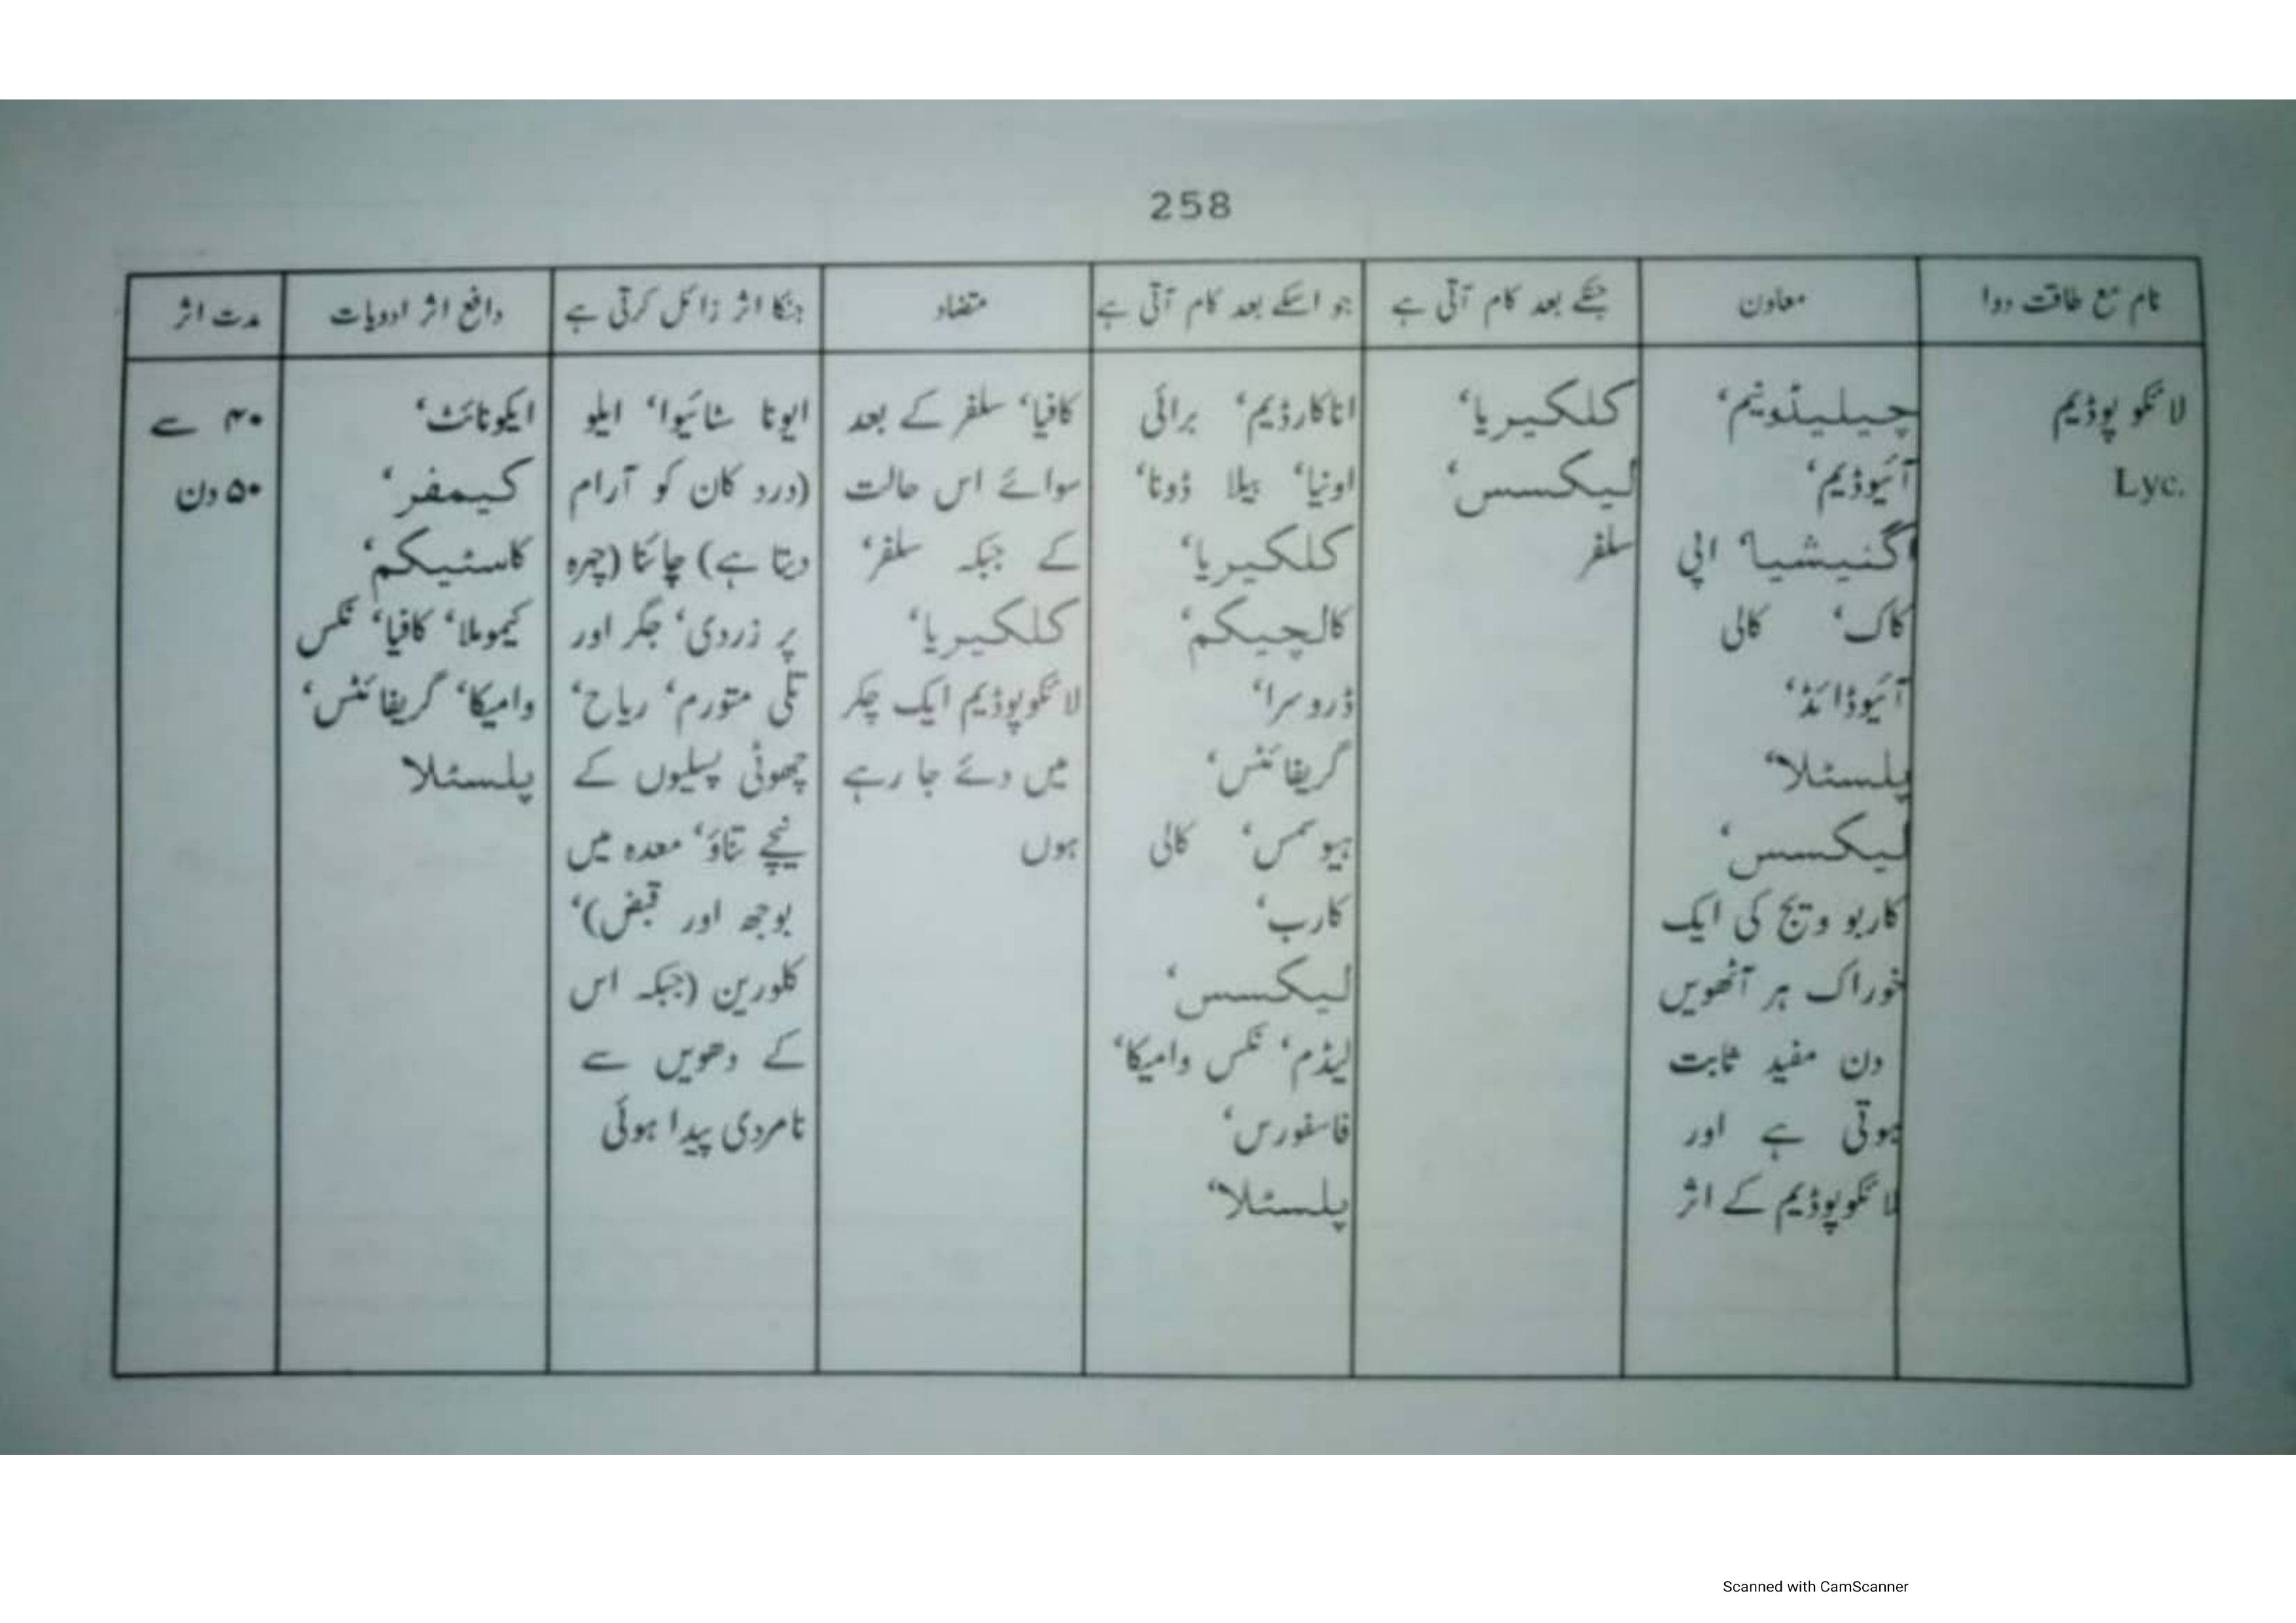 258
نام مع طاقت دوا
معاون
جسکے بعد کام آتی ہے
جو اسکے بعد کام آتی ہے
متضاد
جنکا اثر زائل کرتی ہے
دافع اثر ادویات
مدت اثر
لائکو پوڈیم
Lyc.
چیلیڈونیم،
آئیوڈیم،
اگنیشیا، اپی
کاک، کالی
آئیوڈائڈ،
پلسٹلا،
لیکسس،
کاربو ویج کی ایک
خوراک ہر آٹھویں
دن مفید ثابت
ہوتی ہے اور
لائکوپوڈیم کے اثر
کلکیریا،
لیکسس،
سلفر
اناکارڈیم، برائی
اونیا، بیلا ڈونا،
کلکیریا،
کالچیکم،
ڈروسرا،
گریفائٹس،
ہیوسمس، کالی
کارب،
لیکسس،
لیڈم، نکس وامیکا،
فاسفورس،
پلسٹلا،
کافیا، سلفر کے بعد
سوائے اس حالت
کے جبکہ سلفر،
کلکیریا،
لائکوپوڈیم ایک چکر
میں دئے جا رہے
ہوں
ایونا سٹائیوا، ایلو
(درد کان کو آرام
دیتا ہے) چائنا (چہرہ
پر زردی، جگر اور
تلی متورم، ریاح،
چھوٹی پسلیوں کے
نیچے تناؤ، معدہ میں
بوجھ اور قبض)،
کلورین (جبکہ اس
کے دھویں سے
نامردی پیدا ہوئی
ایکونائٹ،
کیمفر،
کاسٹیکم،
کیموملا، کافیا، نکس
وامیکا، گریفائٹس،
پلسٹلا
۴۰ سے
۵۰ دن
Scanned with CamScanner